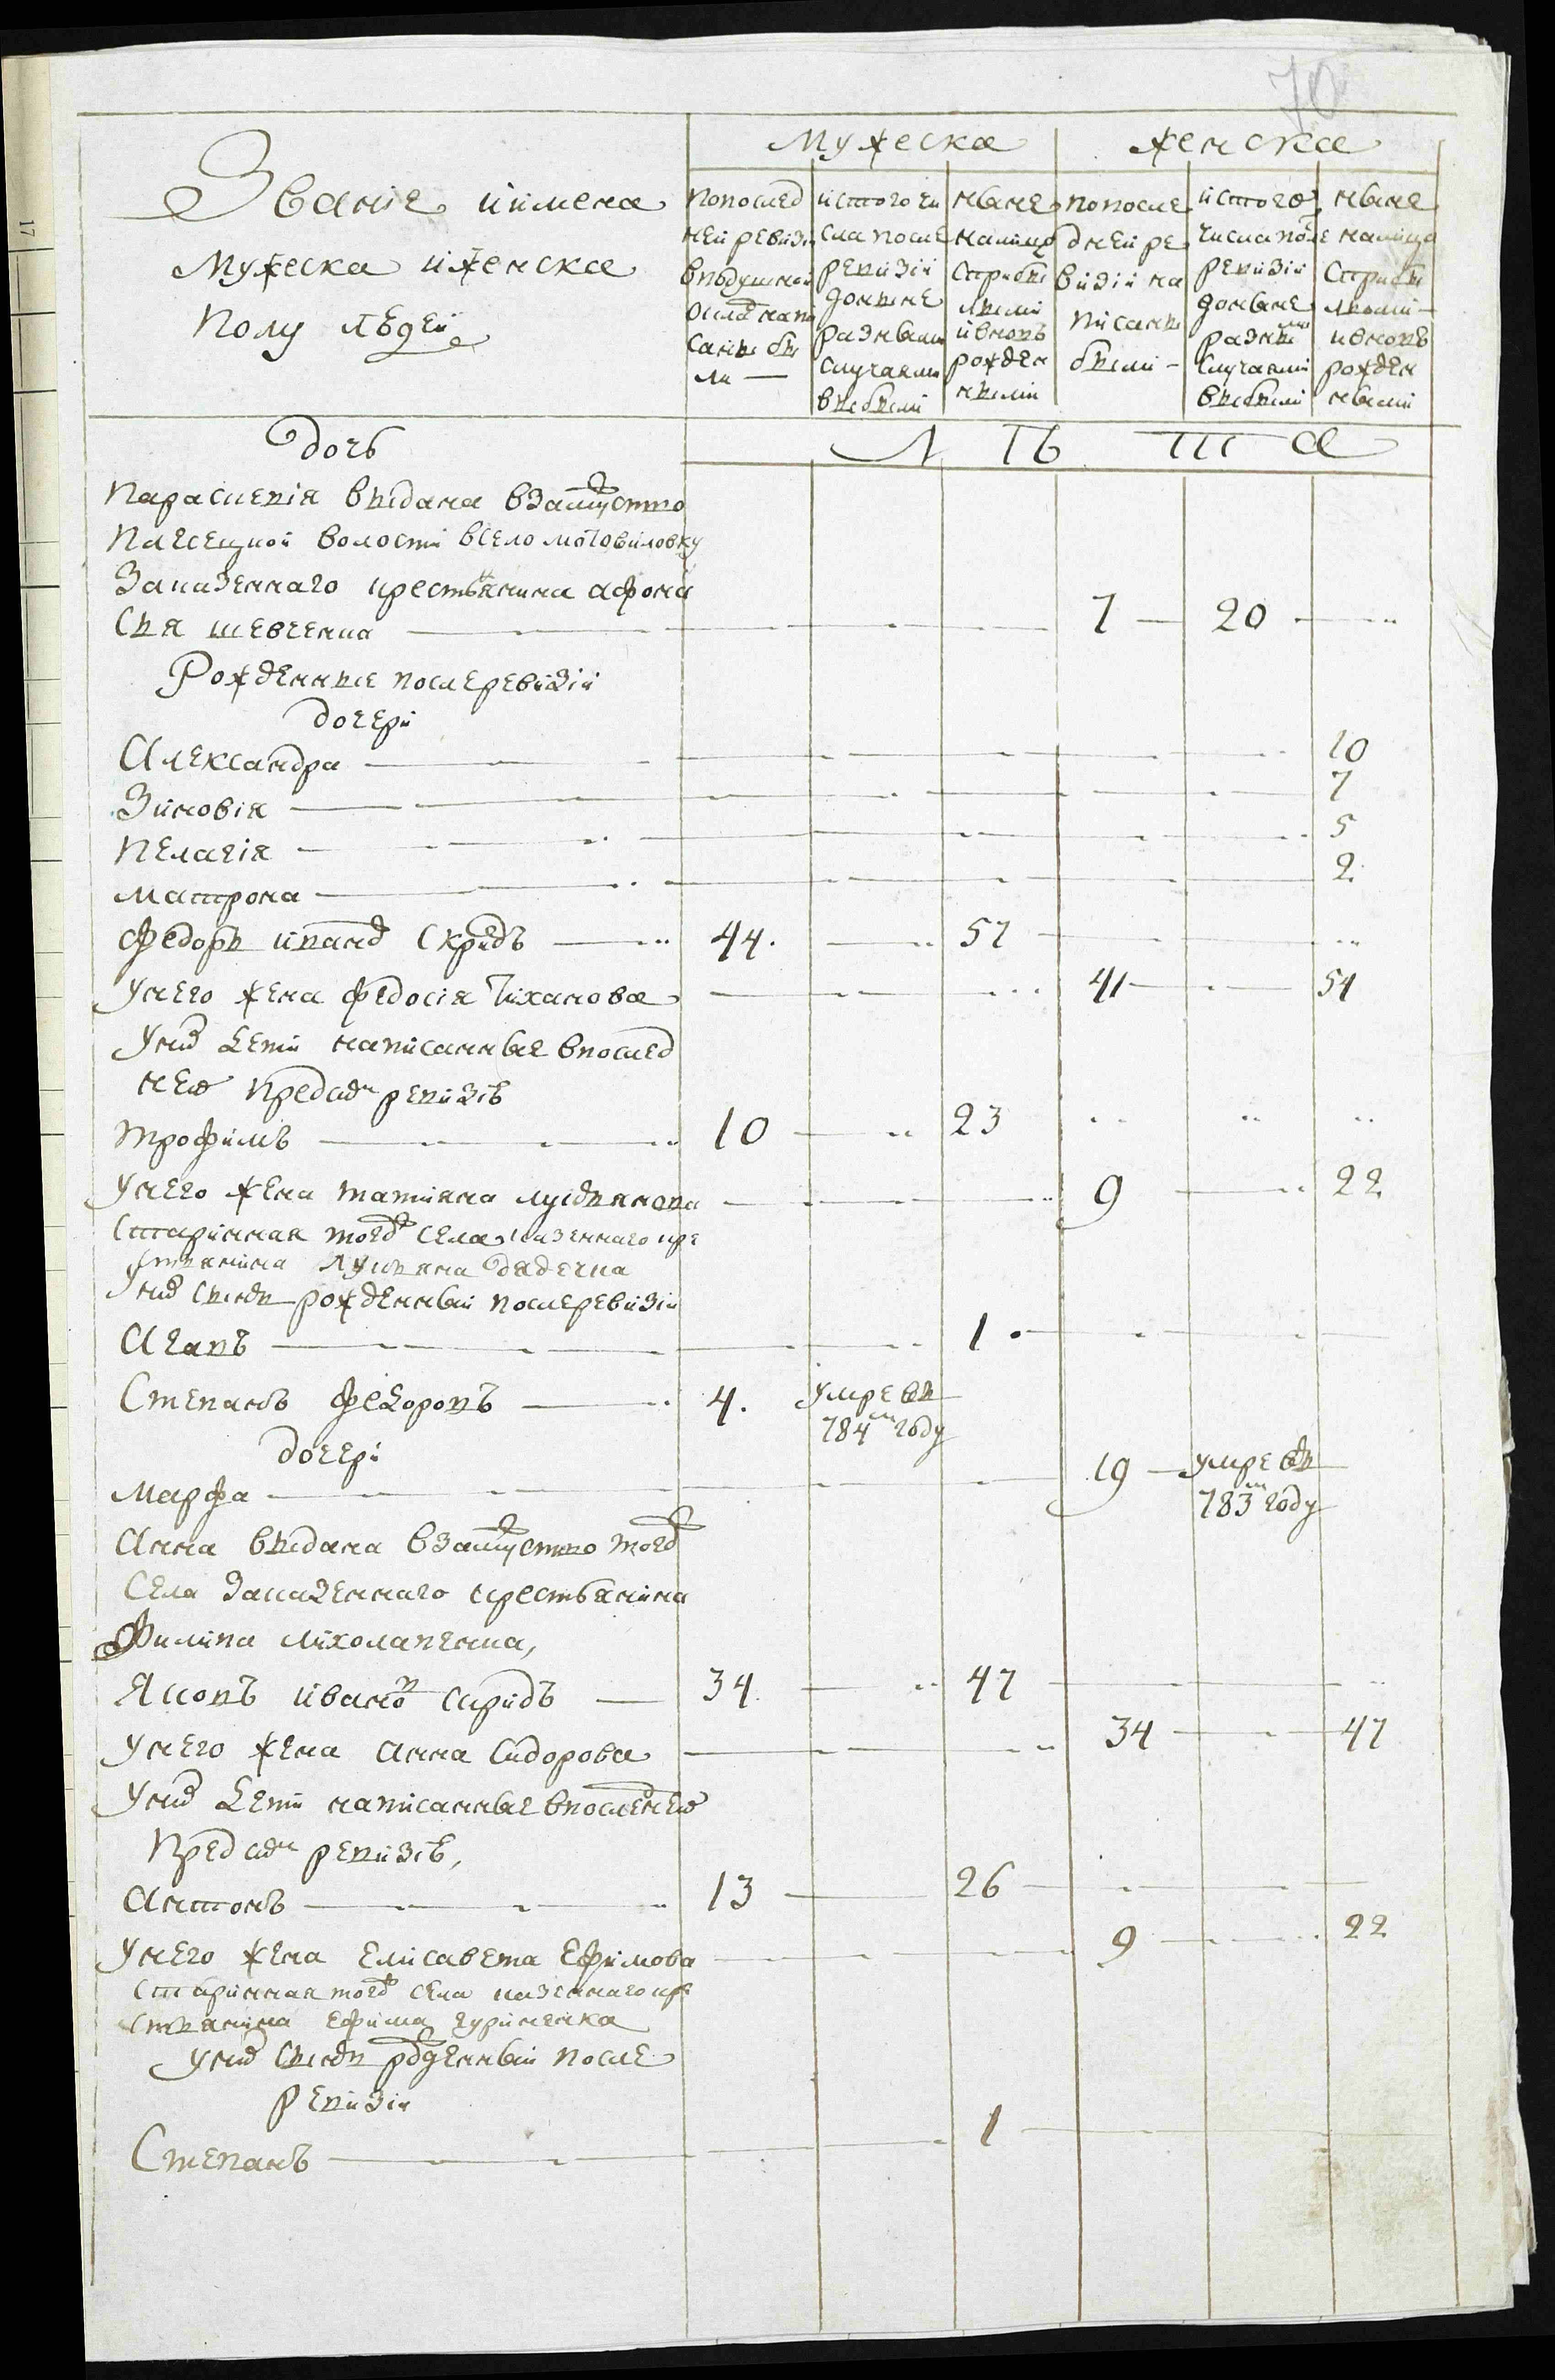 70
17
Званіе иимена
Мужеска иженска
Полу людей
Мужеска
женска
Попослед
ней ревизи
вподушной
окладъ напи
саны бы
ли —
истого чи
сла после
ревизіи
донынѣ
разными
случаями
выбыли
нынѣ
налицо
Сприбы
лыми
ивновь
рожден
ными
Попосле
дней ре
визіи на
писаны
были -
истого
числа после
ревизіи
донынѣ
разными
случаями
выбыли
нынѣ
налицо
Сприбы
лыми
ивновь
рожден
ными
Лѣта
Дочь
Параскевія выдана взамуство
волости всело мотовиловку
Заказеннаго крестьянина афона
сия шевченка 7 20
Рожденные послеревизіи
дочери
Александра 10
Зиновія 7
Пелагія 5
Матрона 2
Федоръ иванов Скридъ 44. 57
Унего жена федосія Тиханова 41 54
Уних дети написанные впослед
ней пред сим ревизіѣ
Трофимъ 10 23
Унего жена татияна лукіянова 9 22
Старинная тогож села казеннаго кре
стьянина Лукьяна Дядечка
Уних сынъ рожденный послеревизіи
Агапъ 1
Степанъ федоровъ 4. умре въ
784м году
дочери
Марфа 19 умре въ
783м году
Анна выдана взамуство тогож
Села заказеннаго крестьянина
Филипа
Яковъ ивановъ скридъ 34. 47
Унего жена анна Сидорова 34 47
Уних дети написанные впоследней
Пред сим ревизіѣ,
Антонъ 13 26
Унего жена Елисавета Ефимова 9 22
Старинная тогож села казеннаго кре
стьянина Ефима гуриненка
уних сынъ рожденный после
ревизіи
Степанъ 1